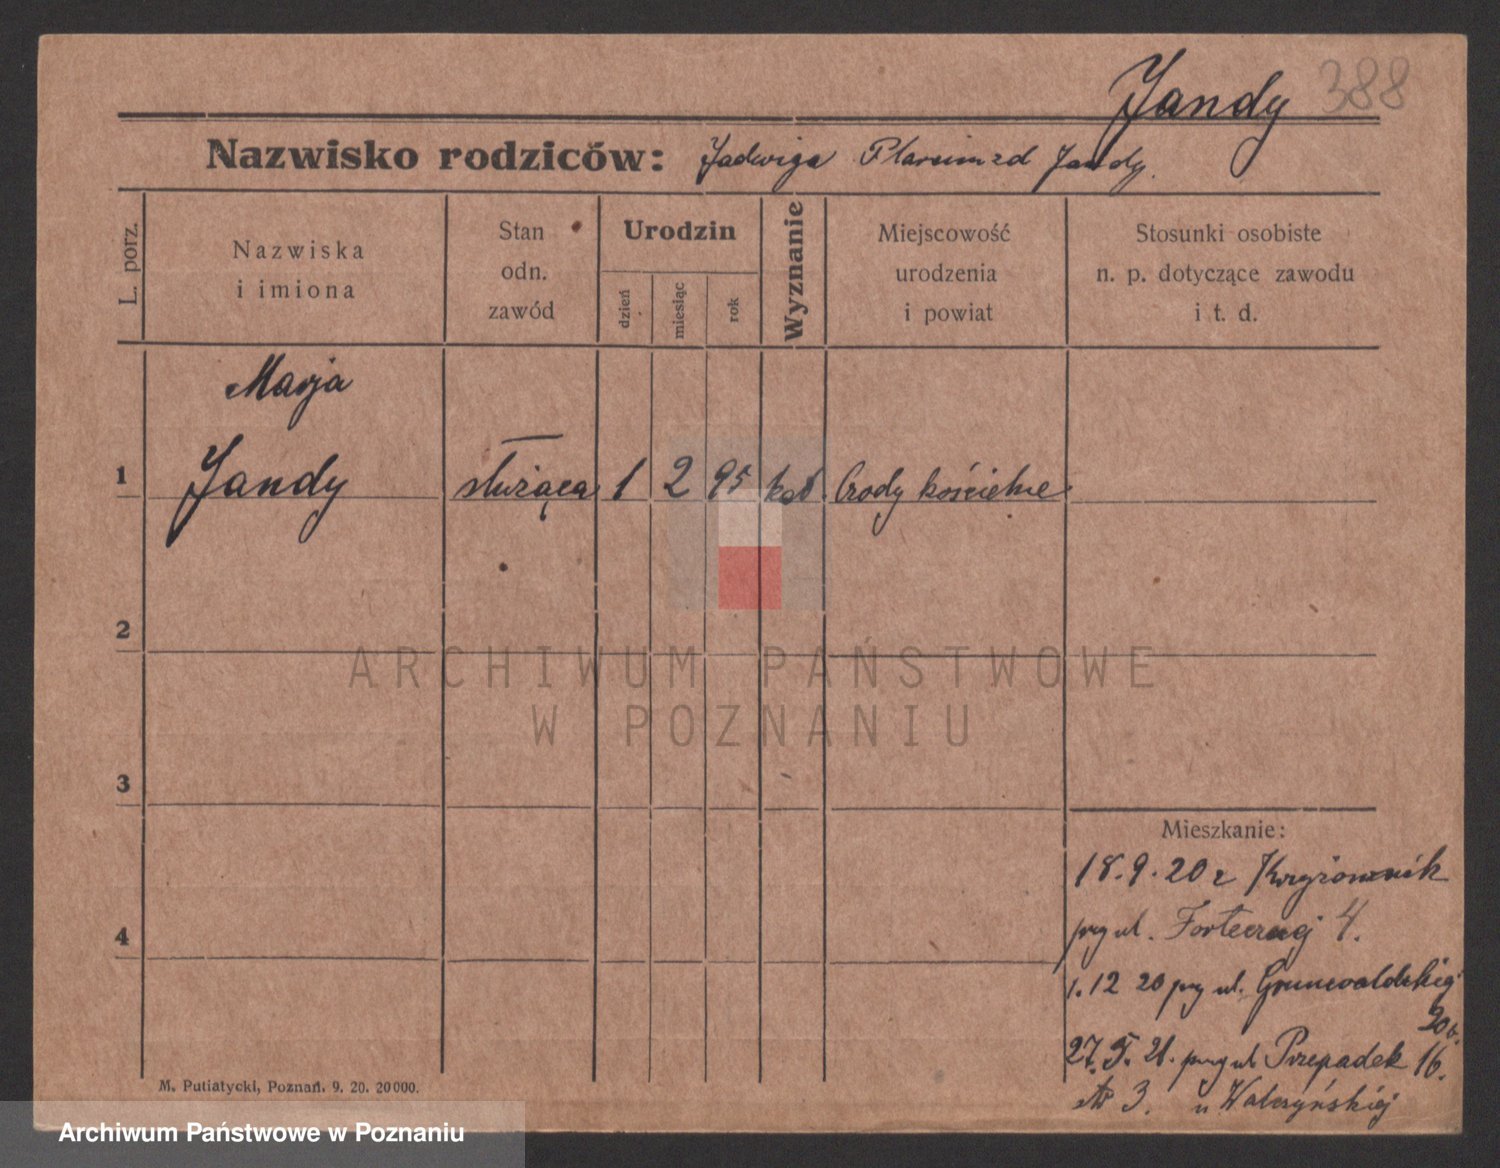 Jandy 388
Nazwisko rodziców: Jadwiga Jandy.
L. porz.
Nazwiska
i imiona
Stan
odn.
zawód
Urodzin
dzień
miesiąc
rok
Wyznanie
Miejscowość
urodzenia
i powiat
Stosunki osobiste
n. p. dotyczące zawodu
i t. d.
Marja
1 Jandy służąca 1 2 95 kat Brody kościelne
2
3
4
ARCHIWUM PAŃSTWOWE
W POZNANIU
Mieszkanie:
18.9.20 z Krzyżownik
przy ul. Fortecznej 4.
1.12 20 przy ul. Grunwaldzkiej
20b.
27.5.21. przy ul. Przepadek 16.
3. u Walczyńskiej
M. Putiatycki, Poznań. 9. 20. 20000.
Archiwum Państwowe w Poznaniu